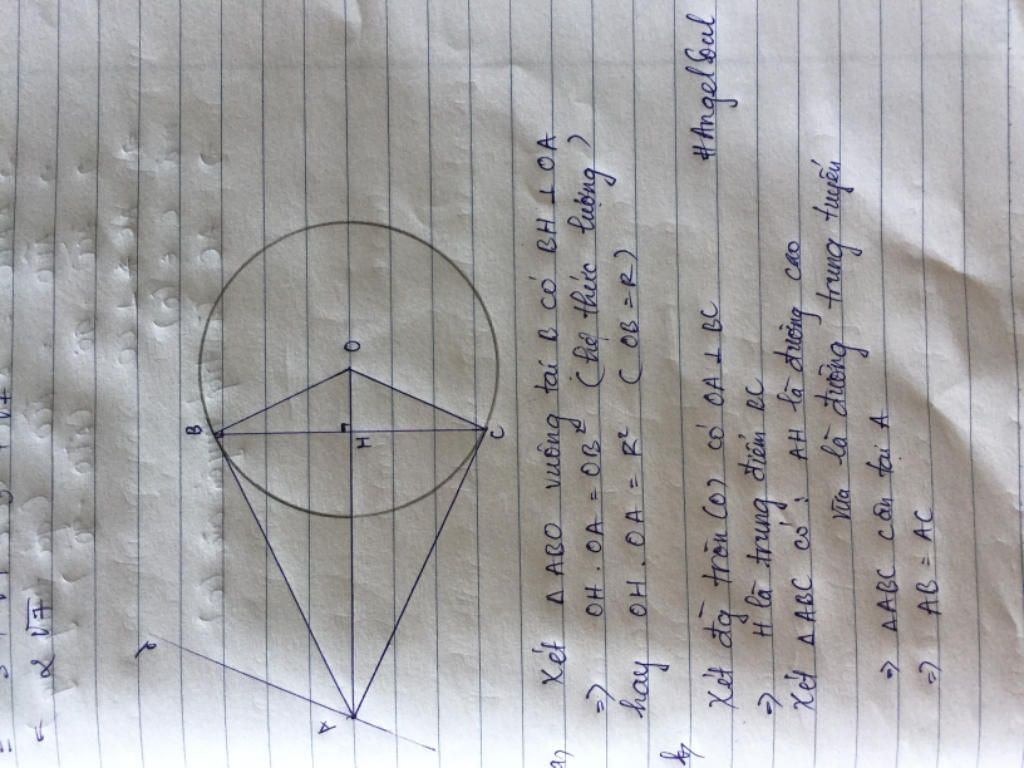 = 2√7
y
A
B
H
O
C
a, Xét ∆ ABO vuông tại B có BH ⊥ OA
=> OH . OA = OB² (hệ thức lượng)
hay OH . OA = R² ( OB = R )
b, Xét đg tròn (O) có OA ⊥ BC
=> H là trung điểm BC
Xét ∆ ABC có : AH là đường cao
vừa là đường trung tuyến
=> ∆ABC cân tại A
=> AB = AC